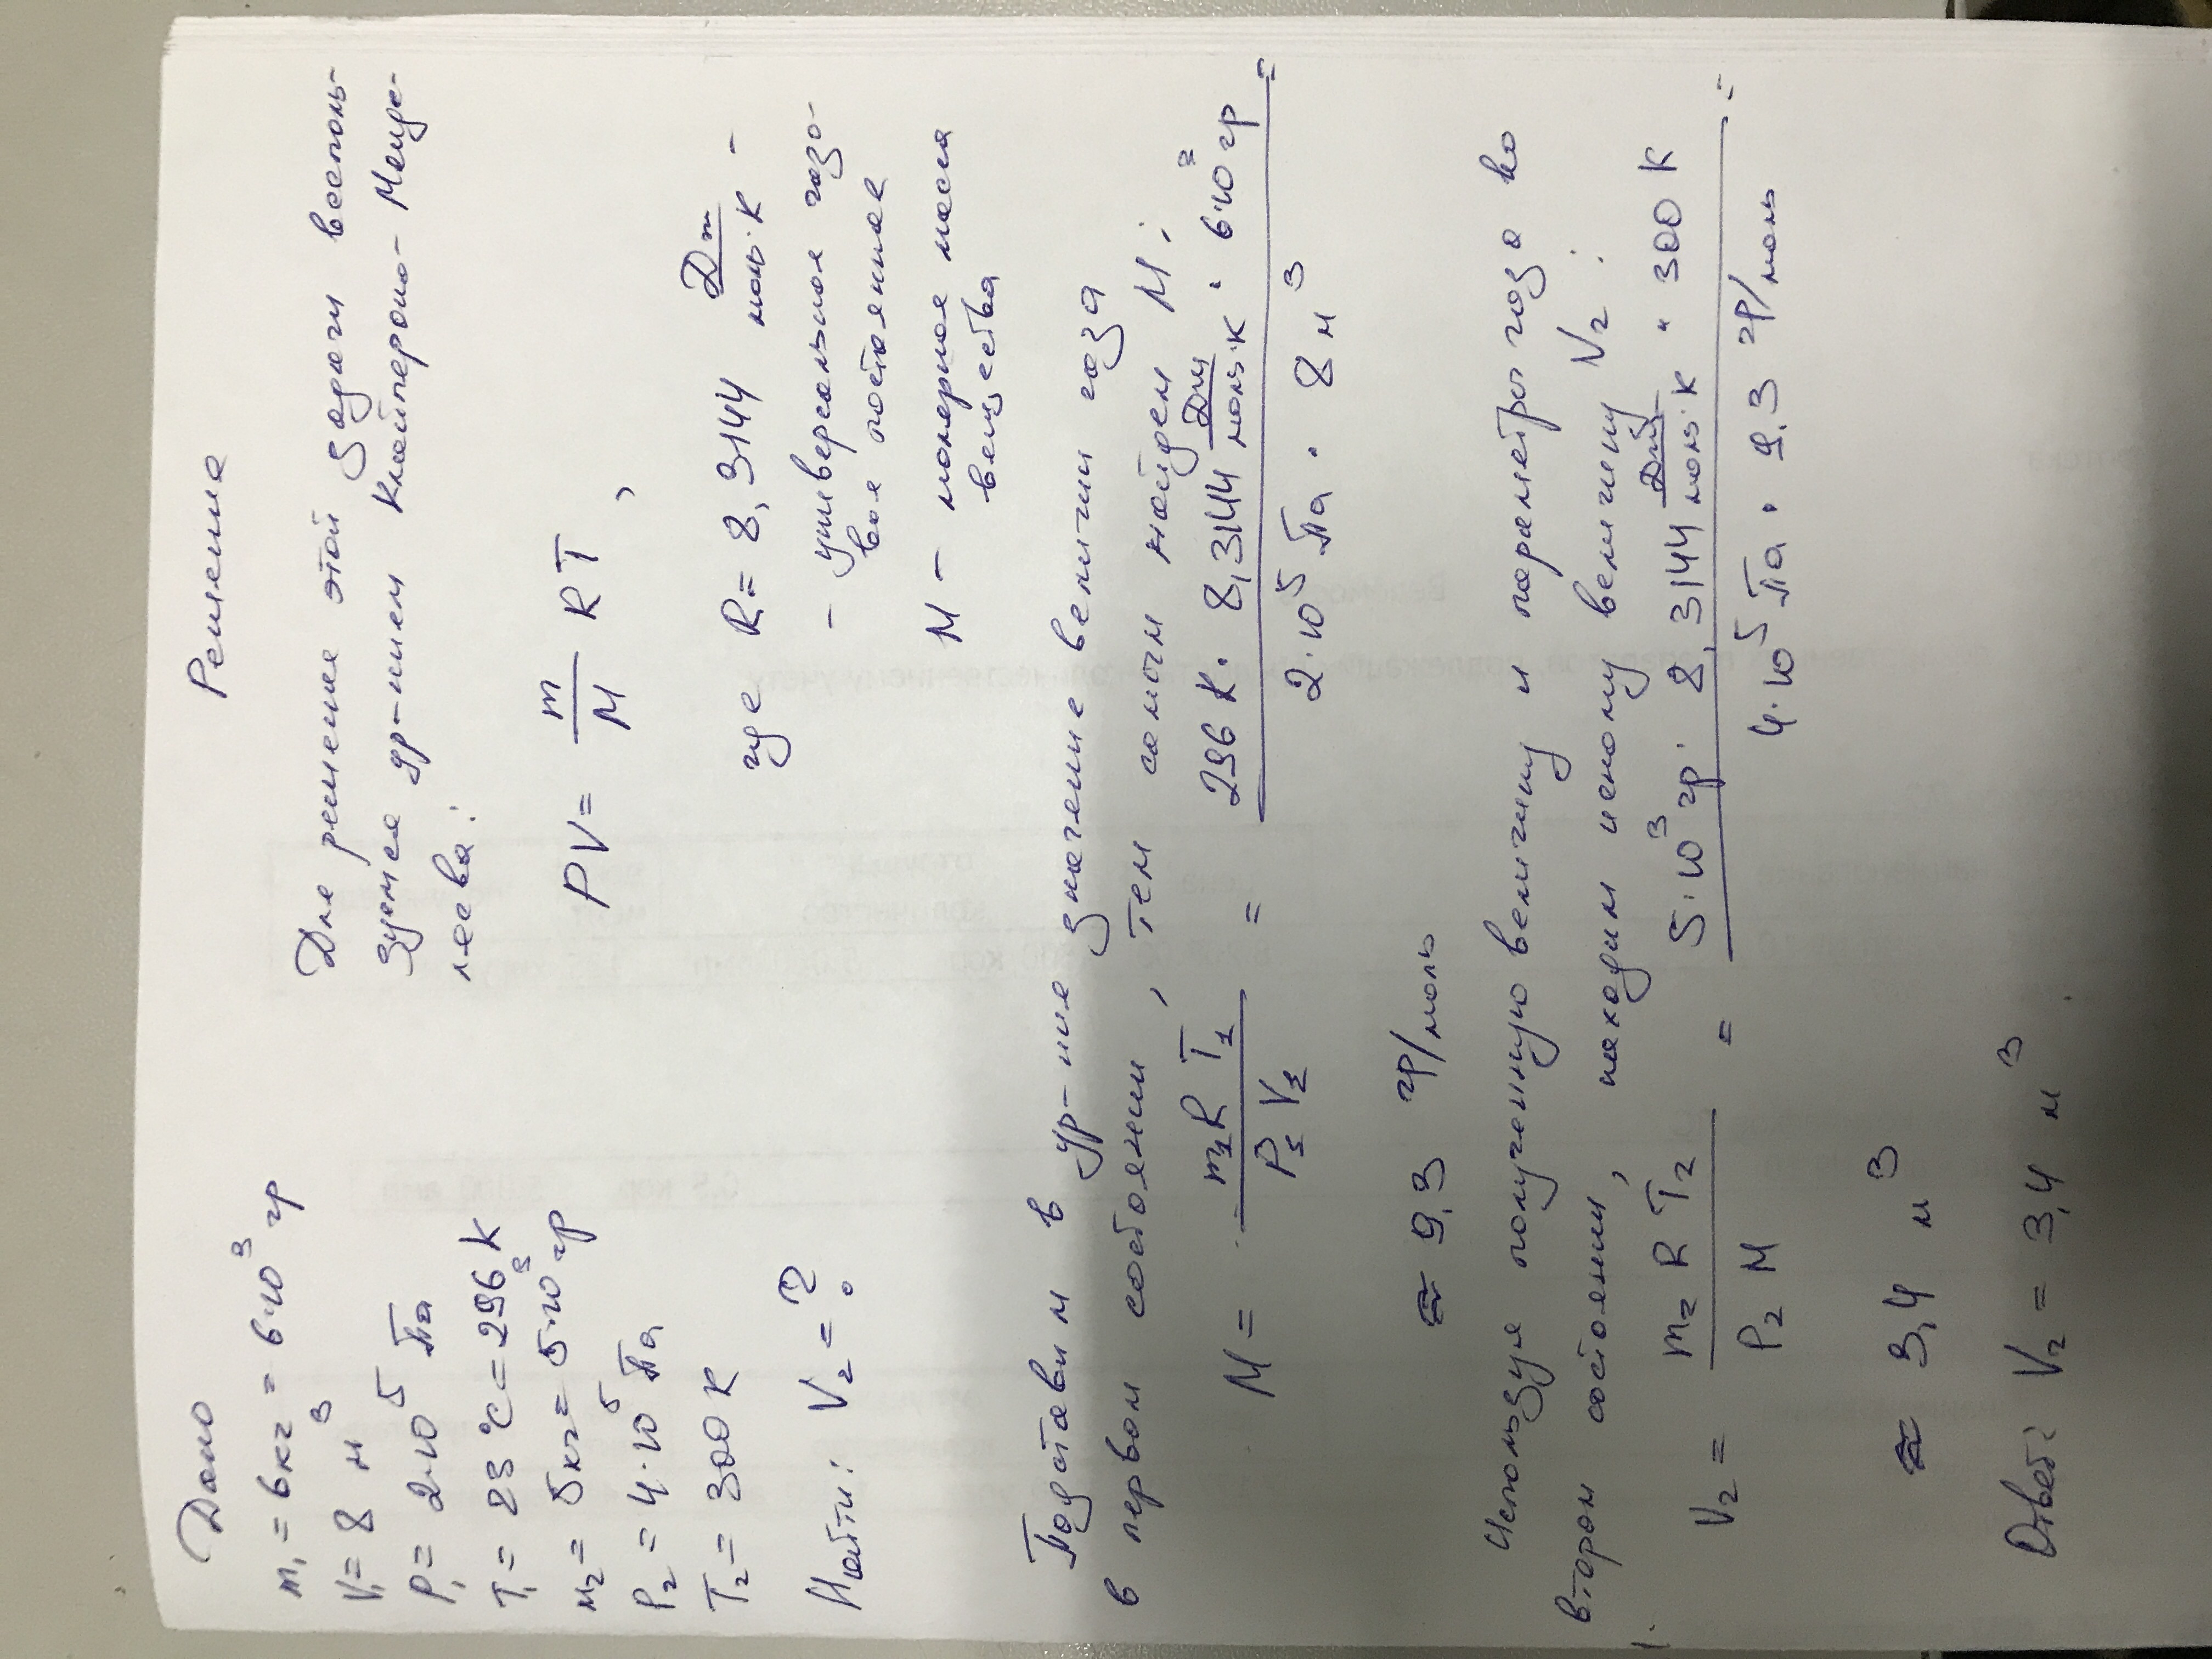 Дано
m₁ = 6кг = 6·10³ гр
V₁= 8 м³
P₁= 2·10⁵ Па
T₁= 23 °C = 296 К
m₂= 5кг= 5·10³ гр
P₂= 4·10⁵ Па
T₂= 300 К
Найти: V₂=?
Решение
Для решения этой задачи восполь-
зуемся ур-нием Клайперона-Менде-
леева:
PV = m/M RT ,
где R= 8,3144 Дж/моль·К -
- универсальная газо-
вая постоянная
M - молярная масса
вещества
Подставим в ур-ние значение величин газа
в первом состоянии, тем самым найдем M:
M = m₁R T₁ / P₁ V₁ = 296 К · 8,3144 Дж/моль·К · 6·10³ гр / 2·10⁵ Па · 8 м³ =
≈ 9,3 гр/моль
Используя полученную величину и параметры газа во
втором состоянии, находим искомую величину V₂:
V₂ = m₂ R T₂ / P₂ M = 5·10³ гр · 8,3144 Дж/моль·К · 300 К / 4·10⁵ Па · 9,3 гр/моль =
≈ 3,4 м³
Ответ: V₂ = 3,4 м³